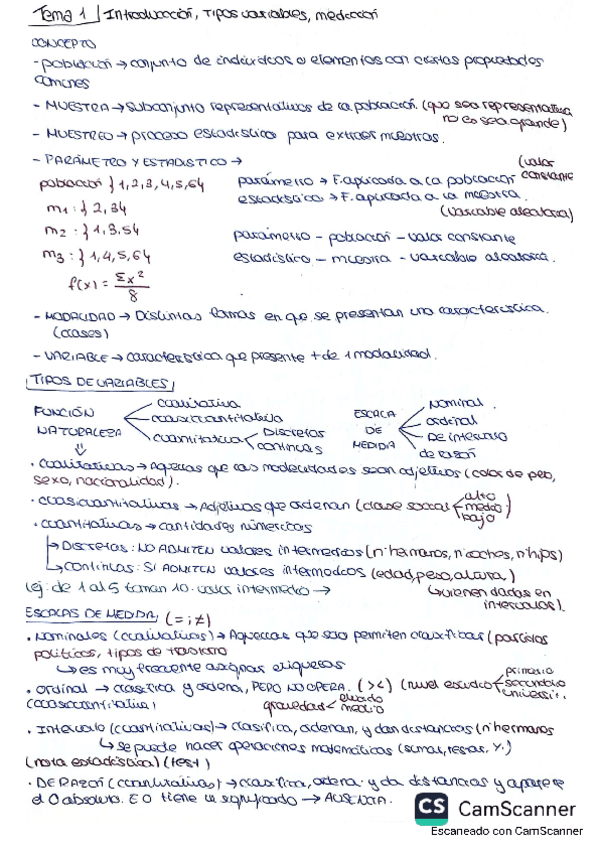 Tema 1 | Introducción, tipos variables, medición
CONCEPTO
- población → conjunto de individuos o elementos con ciertas propiedades
comunes
- MUESTRA → subconjunto representativos de la población. (que sea representativa
no es sea grande)
- MUESTREO → proceso estadístico para extraer muestras.
- PARÁMETRO Y ESTADISTICO →
(valor
constante
población } 1,2,3,4,5,6} parámetro → F. aplicada a la población
m1 : } 2,3} estadístico → F. aplicada a la muestra.
(variable aleatoria)
m2 : } 1,3,5} parámetro - población - valor constante
m3 : } 1,4,5,6} estadístico - muestra - variable aleatoria.
f(x) = Σx² / 8
- MODALIDAD → Distintas formas en que se presentan una característica.
(clases)
- VARIABLE → característica que presente + de 1 modalidad.
TIPOS DE VARIABLES
FUNCIÓN NATURALEZA
cualitativa
cuasicuantitativa
cuantitativa
Discretas
continuas
ESCALA DE MEDIDA
Nominal.
ordinal
De intervalo
de razón
· cualitativas → Aquellas que las modalidades sean adjetivos (color de pelo,
sexo, nacionalidad).
· cuasicuantitativas → Adjetivos que ordenan (clase social
alto
medio
bajo)
· cuantitativas → cantidades numericas
→ Discretas: NO ADMITEN valores intermedios (nº hermanos, nº coches, nº hijos)
→ continuas: SI ADMITEN valores intermedios (edad, peso, altura)
(ej: de 1 al 5 toman 10. valor intermedio →
↳ vienen dadas en
intervalos).
ESCALAS DE MEDIDA (= ; ≠)
· Nominales (cualitativas) → Aquellas que solo permiten clasificar (partidos
políticos, tipos de trastorno
↳ es muy frecuente asignar etiquetas
· ordinal → clasifica y ordena, PERO NO OPERA. (> <) (nivel estudio
primario
secundario
universit.
(cuasicuantitativa)
gravedad
elevado
medio
· Intervalo (cuantitativas) → clasifica, ordenan, y dan distancias (nº hermanos
↳ se puede hacer operaciones matemáticas (sumas, restas,
(nota estadística) (test)
· DE RAZÓN (cuantitativas) → clasifica, ordena y da distancias y aparece
el 0 absoluto. El 0 tiene un significado → AUSENCIA.
CS CamScanner
Escaneado con CamScanner